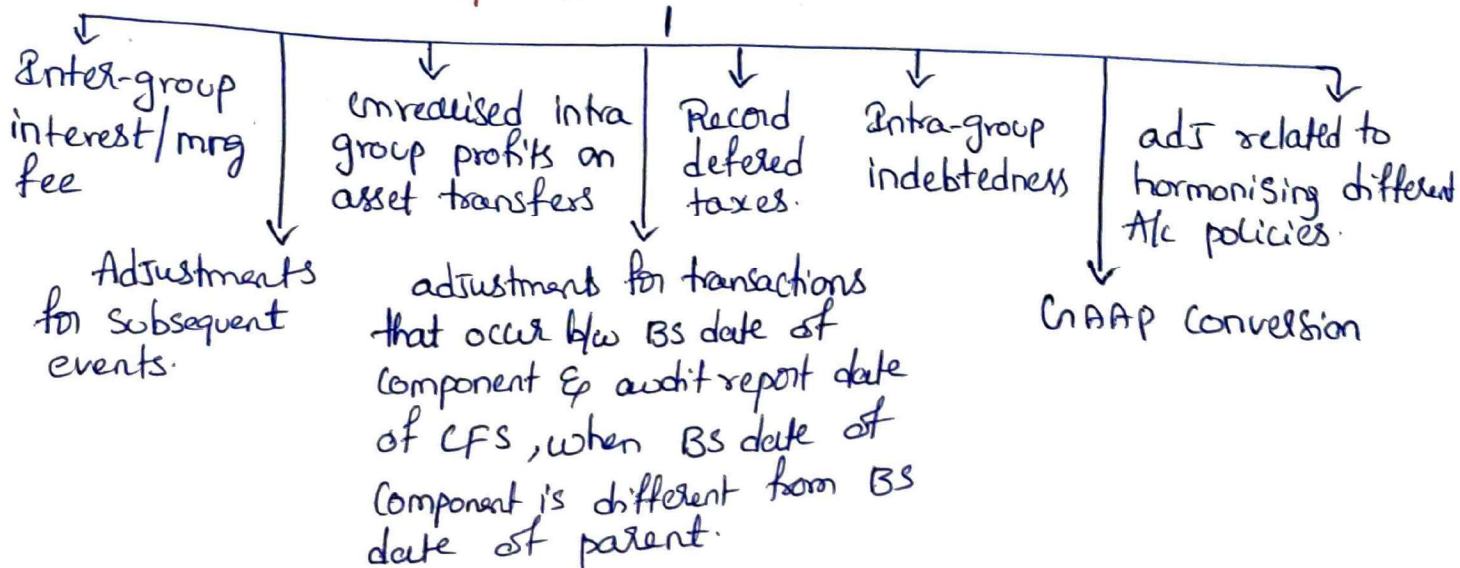 Inter-group
interest/mrg
fee
Adjustments
for subsequent
events.
unrealised intra
group profits on
asset transfers
adjustment for transactions
that occur b/w BS date of
component & audit report date
of CFS, when BS date of
component is different from BS
date of parent.
Record
defered
taxes.
Intra-group
indebtedness
GAAP conversion
adj related to
hormonising different
A/c policies.